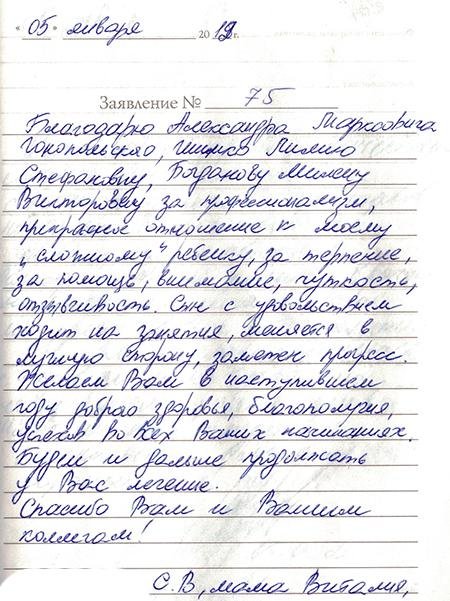 "05" января 2019 г.
Заявление № 75
Благодарю Александра Марковича
Гонопольского, Шишко Лилию
Стефановну, Богданову Милену
Викторовну за профессионализм,
прекрасное отношение к моему
"сложному" ребенку, за терпение,
за помощь, внимание, чуткость,
отзывчивость. Сын с удовольствием
ходит на занятия, меняется в
лучшую сторону, заметен прогресс.
Желаем Вам в наступившем
году доброго здоровья, благополучия,
успехов во всех Ваших начинаниях.
Будем и дальше продолжать
у Вас лечение.
Спасибо Вам и Вашим
коллегам!
С.В., мама Виталия,